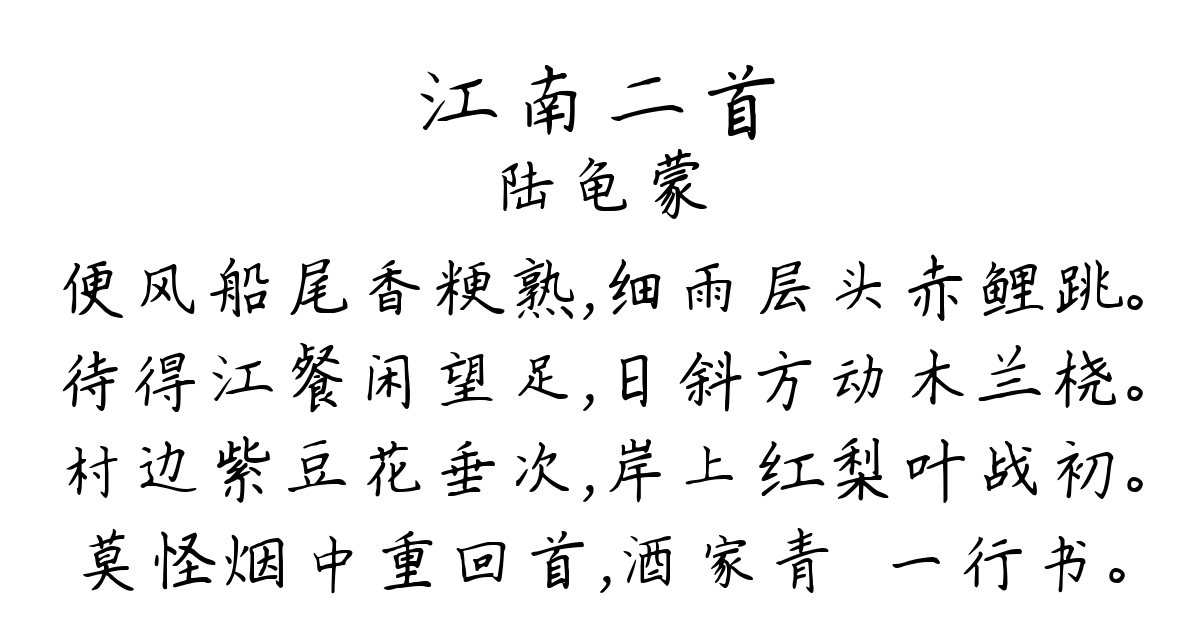 江南二首
陆龟蒙
便风船尾香粳熟,细雨层头赤鲤跳。
待得江餐闲望足,日斜方动木兰桡。
村边紫豆花垂次,岸上红梨叶战初。
莫怪烟中重回首,酒家青 一行书。